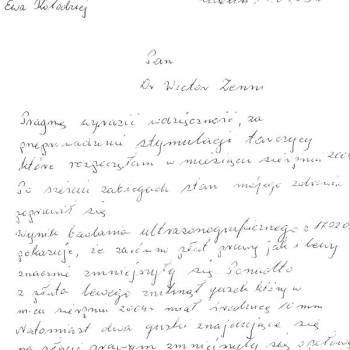 Ewa Kołodziej
Pan
Dr Wictor Zenni
Pragnę wyrazić wdzięczność, za
przeprowadzenie stymulacji tarczycy
które rozpoczęłam w miesiącu sierpniu 200
Po sześciu zabiegach stan mojego zdrowia
poprawił się
Wynik badania ultrasonograficznego z 17.02.0
pokazuje, że zarówno płat prawy jak i lewy
znacznie zmniejszyły się Ponadto
z płata lewego zniknął guzek który w
m-cu sierpniu miał średnicę mm
Natomiast dwa guzki znajdujące się
na płacie prawym zmniejszyły się